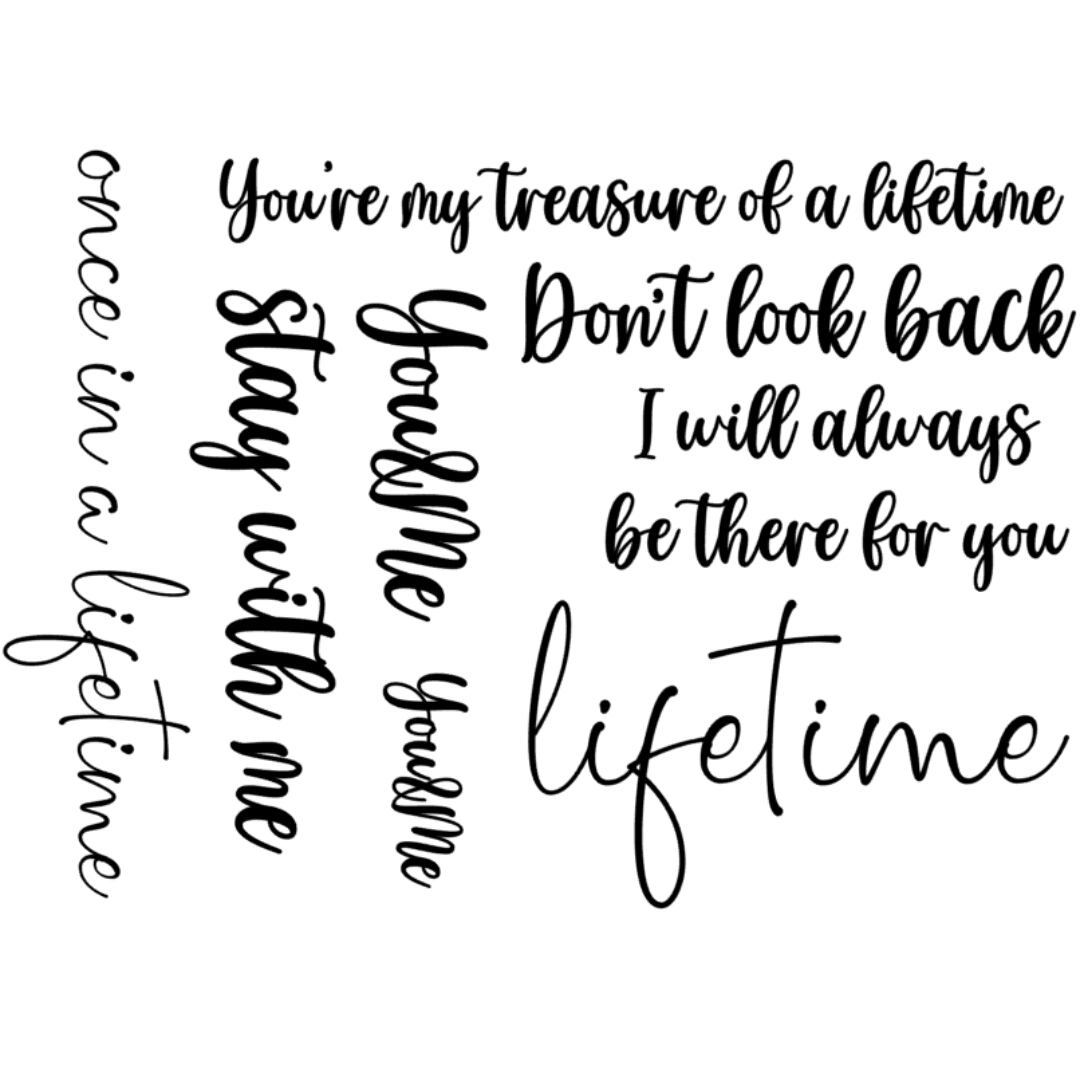 once in a lifetime
Stay with me
You&Me
You&Me
You're my treasure of a lifetime
Don't look back
I will always
be there for you
lifetime